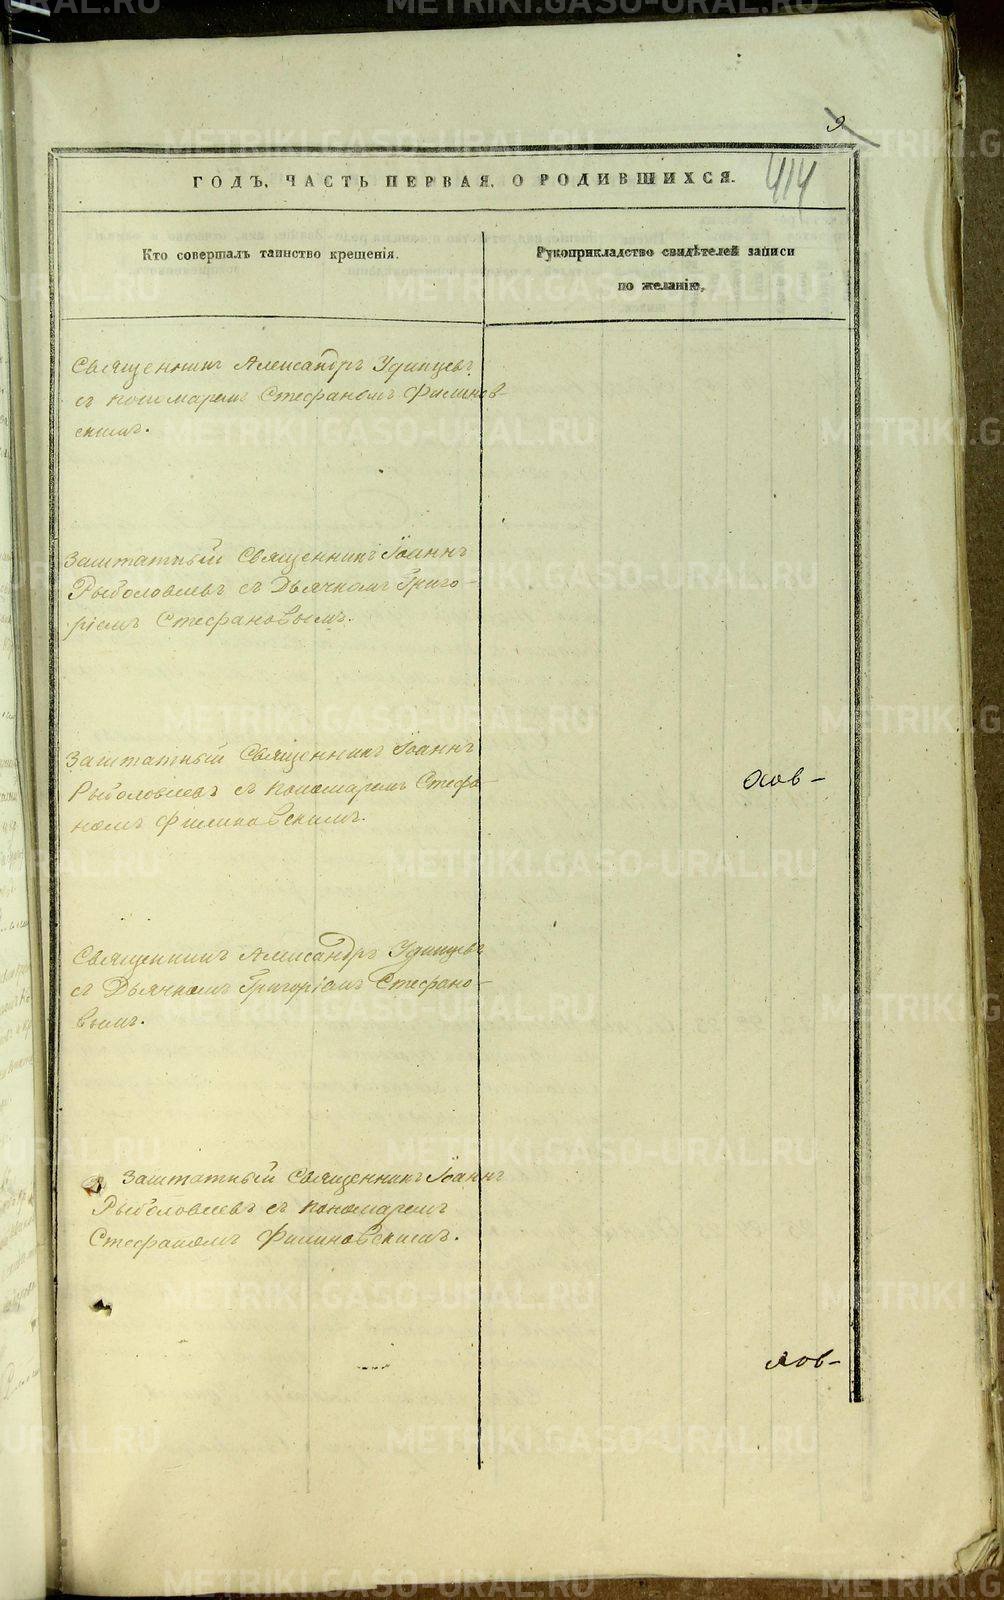 9
414
ГОДЪ, ЧАСТЬ ПЕРВАЯ, О РОДИВШИХСЯ.
Кто совершалъ таинство крещенія.
Рукоприкладство свидѣтелей записи
по желанію,
Священникъ Александръ Удинцевъ
съ пономаремъ Стефаномъ Филинов-
скимъ.
Заштатный Священникъ Іоаннъ
Рыболовлевъ съ Дьячкомъ Григо-
ріемъ Стефановымъ.
Заштатный Священникъ Іоаннъ
Рыболовлевъ съ пономаремъ Стефа
номъ Филиновскимъ.
Священникъ Александръ Удинцевъ
съ Дьячкомъ Григоріемъ Стефано-
вымъ.
Заштатный Священникъ Іоаннъ
Рыболовлевъ съ пономаремъ
Стефаномъ Филиновскимъ.
METRIKI.GASO-URAL.RU